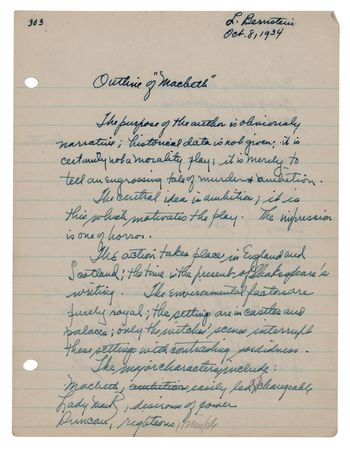 303
L. Bernstein
Oct. 8, 1934
Outline of "Macbeth"
The purpose of the author is obviously
narrative; historical data is not given; it is
certainly not a morality play; it is merely to
tell an engrossing tale of murder & ambition.
The central idea is ambition; it is
this which motivates the play. The impression
is one of horror.
The action takes place in England and
Scotland; the time is the present of Shakespeare's
writing. The environmental factors are
purely royal; the setting are in castles and
palaces; only the witches' scenes interrupt
these setting with contrasting sordidness.
The major characters include:
Macbeth, ambitious, easily led, changeable
Lady Macb., desirous of power
Duncan, righteous, simple